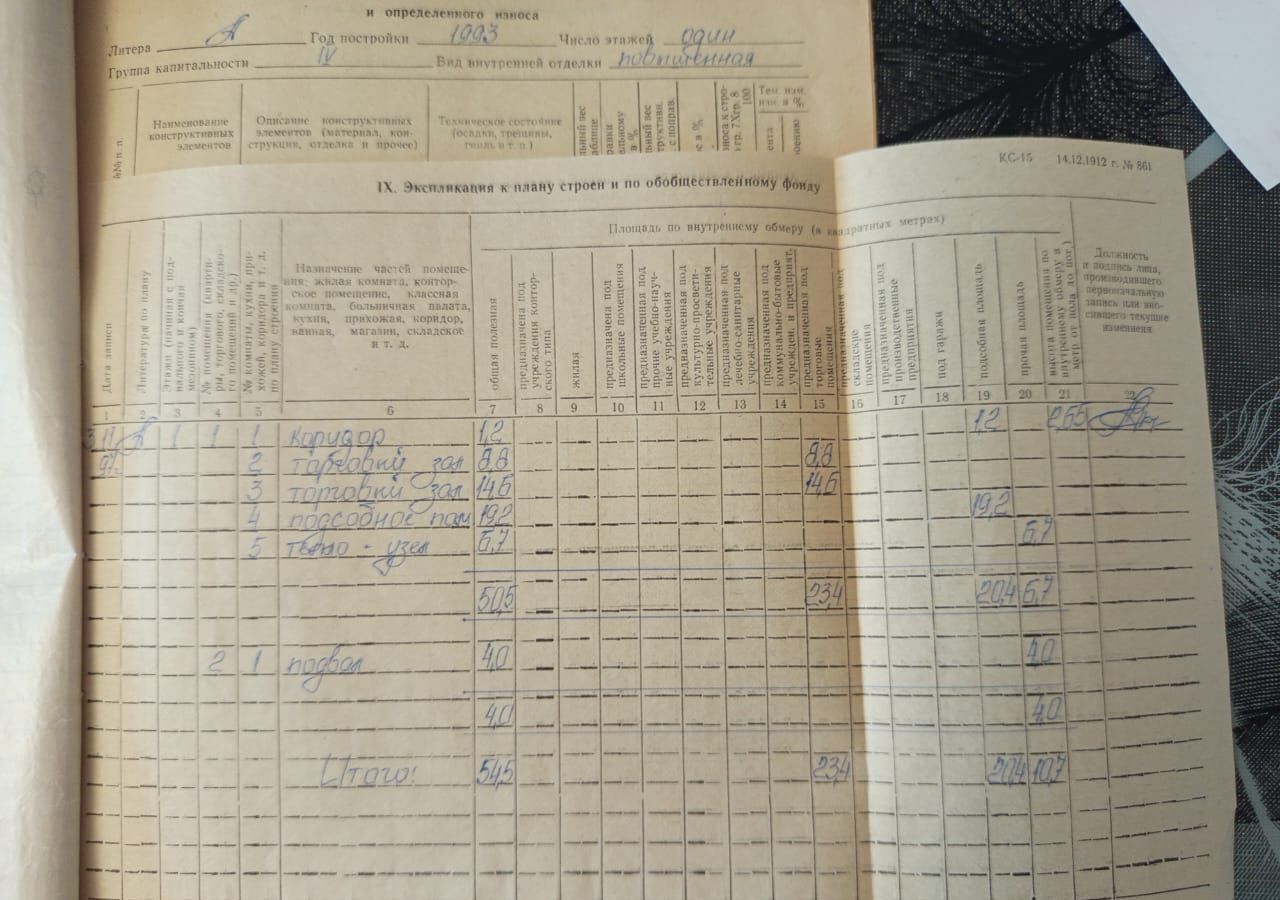 и определенного износа
Литера А Год постройки 1993 Число этажей один
Группа капитальности IV Вид внутренней отделки повышенная
№№ п. п.
Наименование
конструктивных
элементов
Описание конструктивных
элементов (материал, кон-
струкция, отделка и прочее)
Техническое состояние
(осадки, трещины,
гниль и т. п.)
гр. 7Xгр. 8
100
Тек. изм.
изн. в %.
КС-15 14.12.1912 г. № 861
IX. Экспликация к плану строен и по обобществленному фонду
Площадь по внутреннему обмеру (в квадратных метрах)
Дата записи
Литература по плану
Этажи (начиная с под-
вального и кончая
мезонином)
№ помещения (кварти-
ры, торгового, складско-
го помещений и др)
№ комнаты, кухни, при-
хожей, коридора и т. д.
по плану строения
Назначение частей помеще-
ния: жилая комната, контор-
ское помещение, классная
комната, больничная палата,
кухня, прихожая, коридор,
ванная, магазин, складское
и т. д.
общая полезная
предназначена под
учреждения контор-
ского типа
жилая
предназначена под
школьные помещения
предназначенная под
прочие учебно-науч-
ные учреждения
предназначенная под
культурно-просвети-
тельные учреждения
предназначенная под
лечебно-санитарные
учреждения
предназначенная под
коммунально-бытовые
учрежден. и предприят.
предназначенная под
торговые
помещения
предназначенная под
складские
помещения
предназначенная под
производственные
предприятия
под гаражи
подсобная площадь
прочая площадь
высота помещения по
внутреннему обмеру в
метр от пола до пот.)
Должность
и подпись лица,
производившего
первоначальную
запись или вно-
сившего текущие
изменения
1 2 3 4 5 6 7 8 9 10 11 12 13 14 15 16 17 18 19 20 21 22
А 1 1 1 коридор 1,2 1,2 2,65
97. 2 торговый зал 8,8 8,8
3 торговый зал 14,6 14,6
4 подсобное пом 19,2 19,2
5 тепло - узел 6,7 6,7
50,5 23,4 20,4 6,7
2 1 подвал 4,0 4,0
4,0 4,0
Итого: 54,5 23,4 20,4 10,7